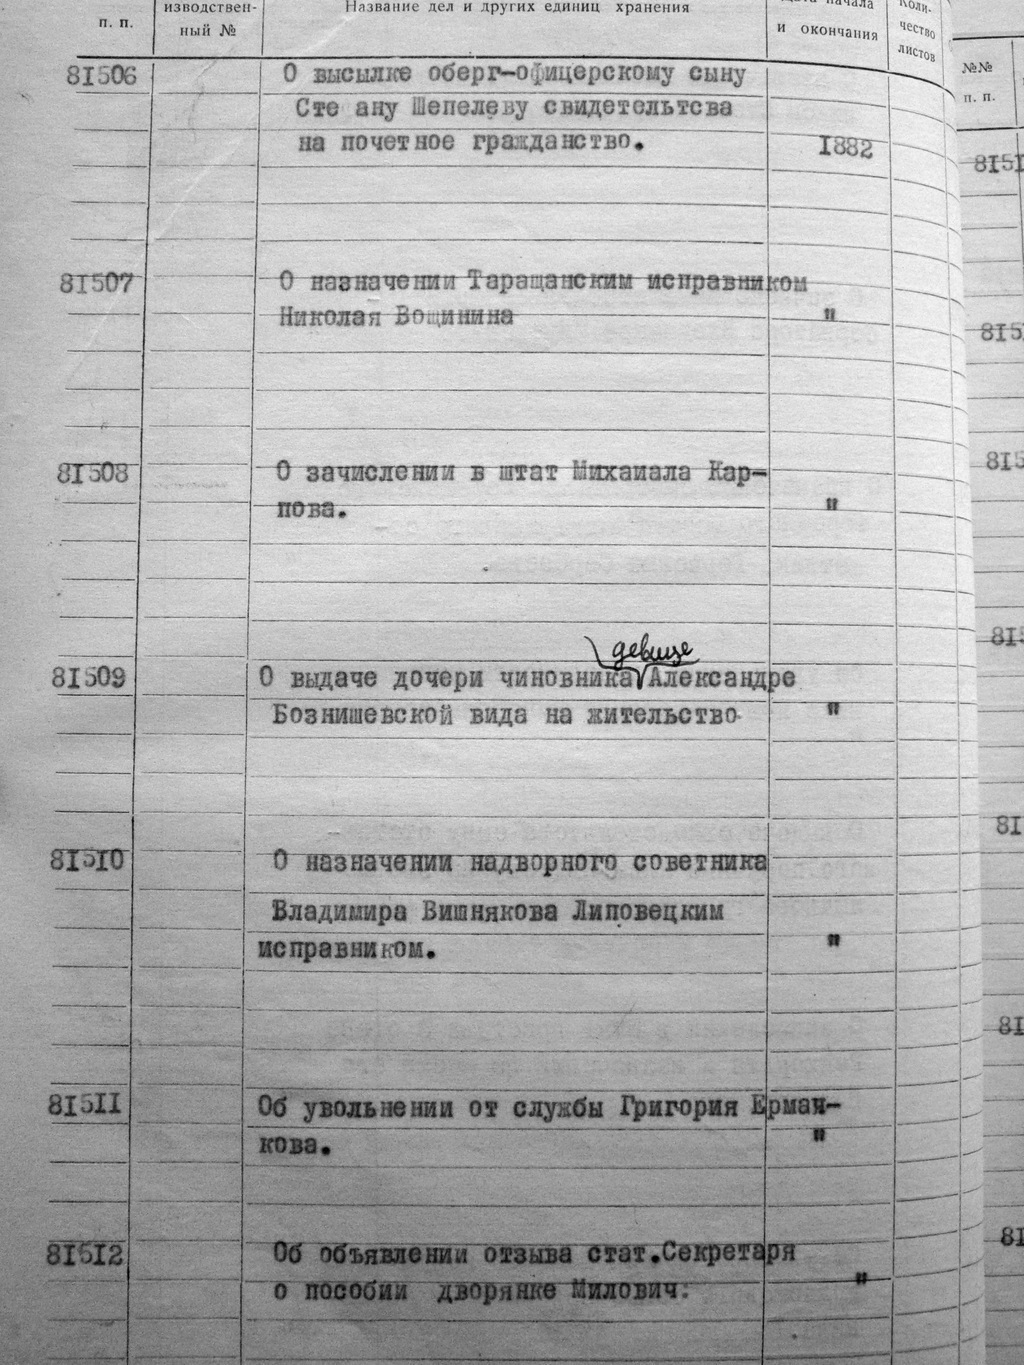 п. п.
изводствен-
ный №
Название дел и других единиц хранения
Дата начала
и окончания
Коли-
чество
листов
81506
О высылке оберг-офицерскому сыну
Сте ану Шепелеву свидетельтсва
на почетное гражданство.
1882
81507
О назначении Таращанским исправником
Николая Вощинина
"
81508
О зачислении в штат Михаиала Кар-
пова.
"
девице
81509
О выдаче дочери чиновника Александре
Бознишевской вида на жительство
"
81510
О назначении надворного советника
Владимира Вишнякова Липовецким
исправником.
"
81511
Об увольнении от службы Григория Ермач-
кова.
"
81512
Об объявлении отзыва стат.Секретаря
о пособии дворянке Милович:
"
№№
п. п.